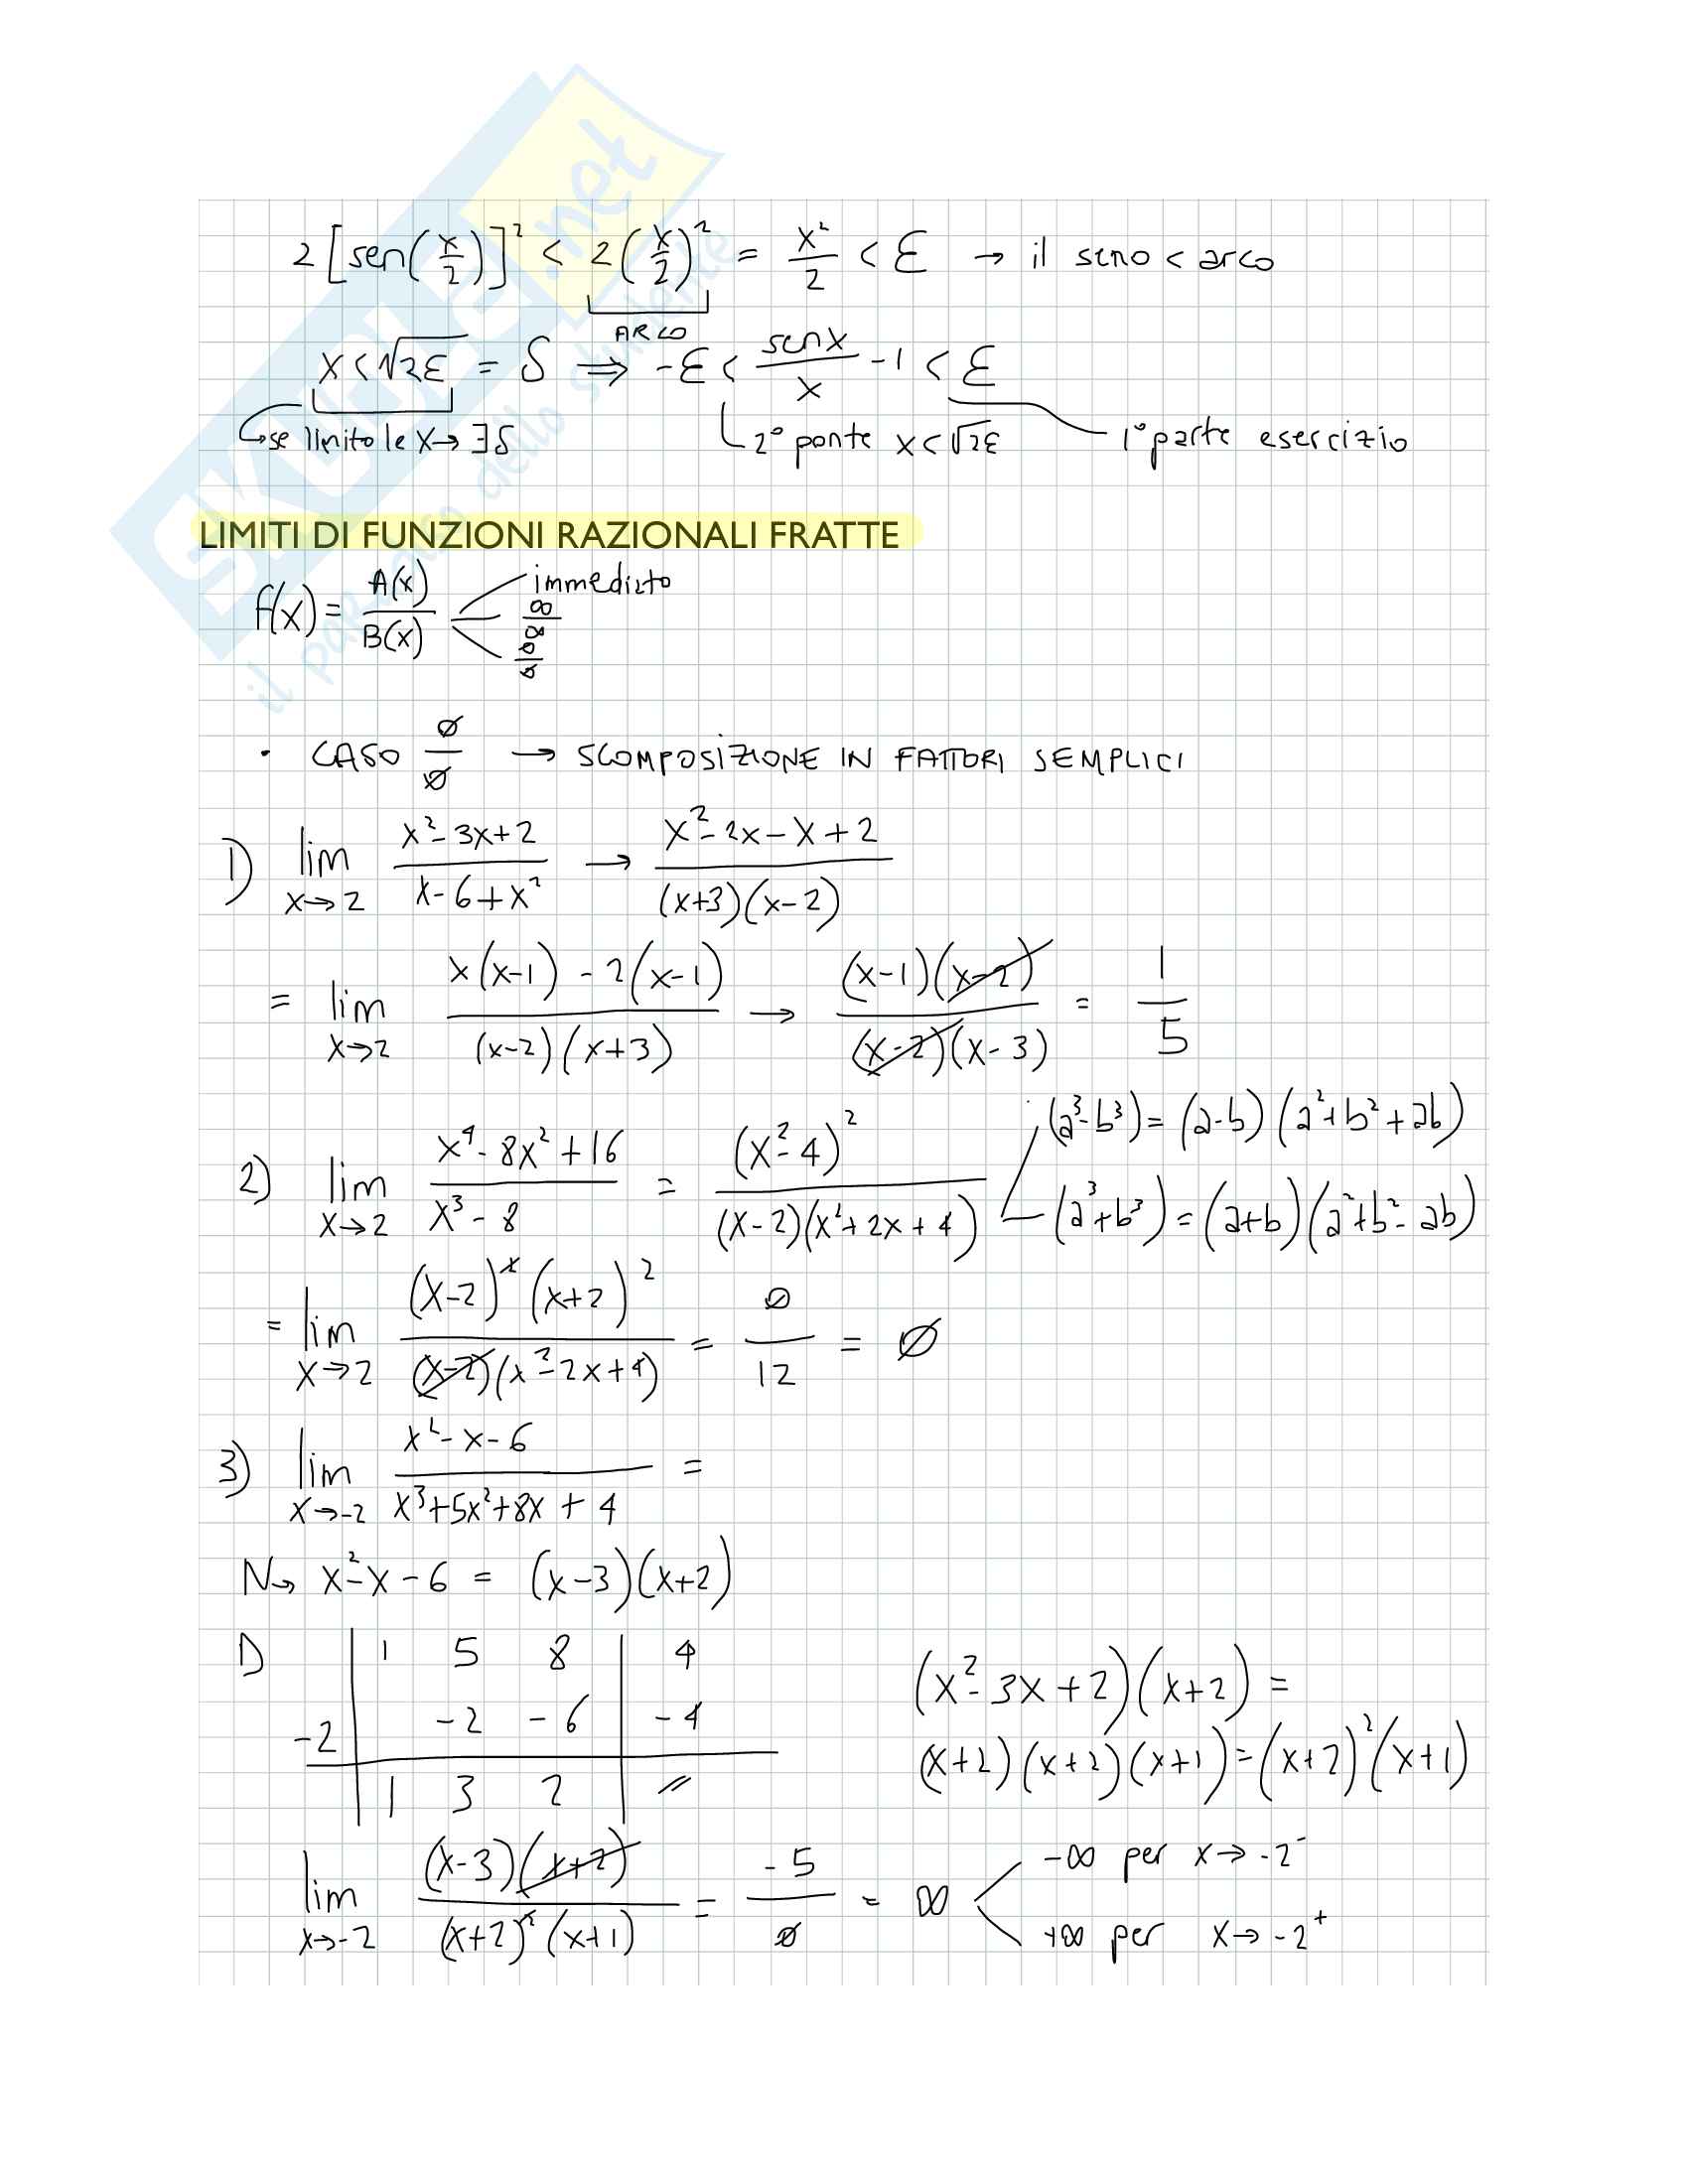 2[sen(x/2)]² < 2(x/2)² = x²/2 < ε → il seno < arco
ARCO
x < √2ε = δ ⟹ -ε < senx/x - 1 < ε
se limito le x → ∃δ
2° ponte x < √2ε
1° parte esercizio
LIMITI DI FUNZIONI RAZIONALI FRATTE
f(x) = A(x)/B(x)
immediato
∞/∞
0/0
• CASO 0/0 → SCOMPOSIZIONE IN FATTORI SEMPLICI
1) lim x→2 (x²-3x+2)/(x-6+x²) → (x²-2x-x+2)/((x+3)(x-2))
= lim x→2 (x(x-1)-2(x-1))/((x-2)(x+3)) → ((x-1)(x-2))/((x-2)(x-3)) = 1/5
2) lim x→2 (x⁴-8x²+16)/(x³-8) = (x²-4)²/((x-2)(x²+2x+4))
(a³-b³) = (a-b)(a²+b²+ab)
(a³+b³) = (a+b)(a²+b²-ab)
= lim x→2 ((x-2)²(x+2)²)/((x-2)(x²-2x+4)) = 0/12 = 0
3) lim x→-2 (x²-x-6)/(x³+5x²+8x+4) =
N→ x²-x-6 = (x-3)(x+2)
D | 1 5 8 | 4
-2 | -2 -6 | -4
| 1 3 2 | //
(x²-3x+2)(x+2) =
(x+2)(x+2)(x+1) = (x+2)²(x+1)
lim x→-2 ((x-3)(x+2))/((x+2)²(x+1)) = -5/0 = ∞
-∞ per x→-2⁻
+∞ per x→-2⁺
SKUOLA.net
il paradiso dello studente